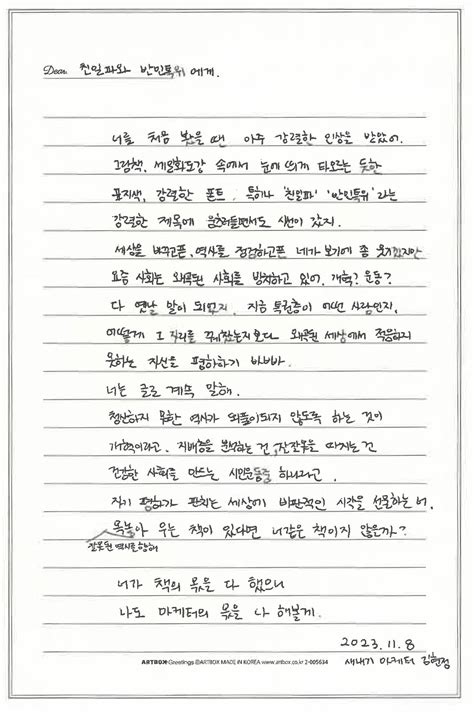 Dear. 친일파와 반민특위에게.
너를 처음 봤을 때 아주 강렬한 인상을 받았어.
그림책, 세밀화도감 속에서 눈에 띄게 타오르는 듯한
표지색, 강렬한 폰트. 특히나 '친일파' '반민특위'라는
강력한 제목에 움츠러들면서도 시선이 갔지.
세상을 바꾸고픈, 역사를 점검하고픈 네가 보기에 좀 웃기겠지만
요즘 사회는 왜곡된 사회를 방치하고 있어. 개혁? 운동?
다 옛날 말이 되었지. 지금 특권층이 어떤 사람인지,
어떻게 그 자리를 꿰찼는지보다 왜곡된 세상에서 적응하지
못하는 자신을 평하하기 바빠.
너는 글로 계속 말해.
청산하지 못한 역사가 되풀이되지 않도록 하는 것이
개혁이라고. 지배층을 분석하는 건, 잘잘못을 따지는 건
건강한 사회를 만드는 시민운동 중 하나라고.
자기 평하가 판치는 세상에 비판적인 시각을 선물하는 너.
목놓아 우는 책이 있다면 너같은 책이지 않을까?
잘못된 역사를 향해
너가 책의 몫을 다 했으니
나도 마케터의 몫을 다 해볼게.
2023.11.8
새내기 마케터 김현정
ARTBOX Greetings ©ARTBOX MADE IN KOREA www.artbox.co.kr 2-005634